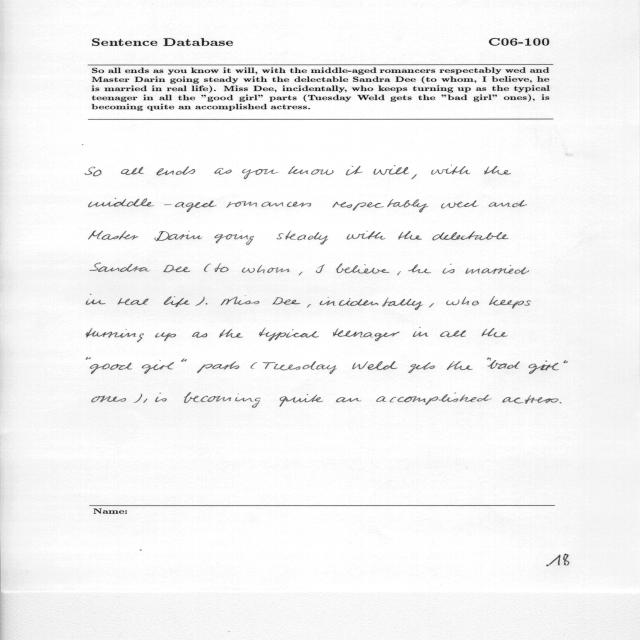 Sentence Database C06-100
So all ends as you know it will, with the middle-aged romancers respectably wed and
Master Darin going steady with the delectable Sandra Dee (to whom, I believe, he
is married in real life). Miss Dee, incidentally, who keeps turning up as the typical
teenager in all the "good girl" parts (Tuesday Weld gets the "bad girl" ones), is
becoming quite an accomplished actress.
So all ends as you know it will, with the
middle-aged romancers respectably wed and
Master Darin going steady with the delectable
Sandra Dee (to whom, I believe, he is married
in real life). Miss Dee, incidentally, who keeps
turning up as the typical teenager in all the
"good girl" parts (Tuesday Weld gets the "bad girl"
ones), is becoming quite an accomplished actress.
Name:
18